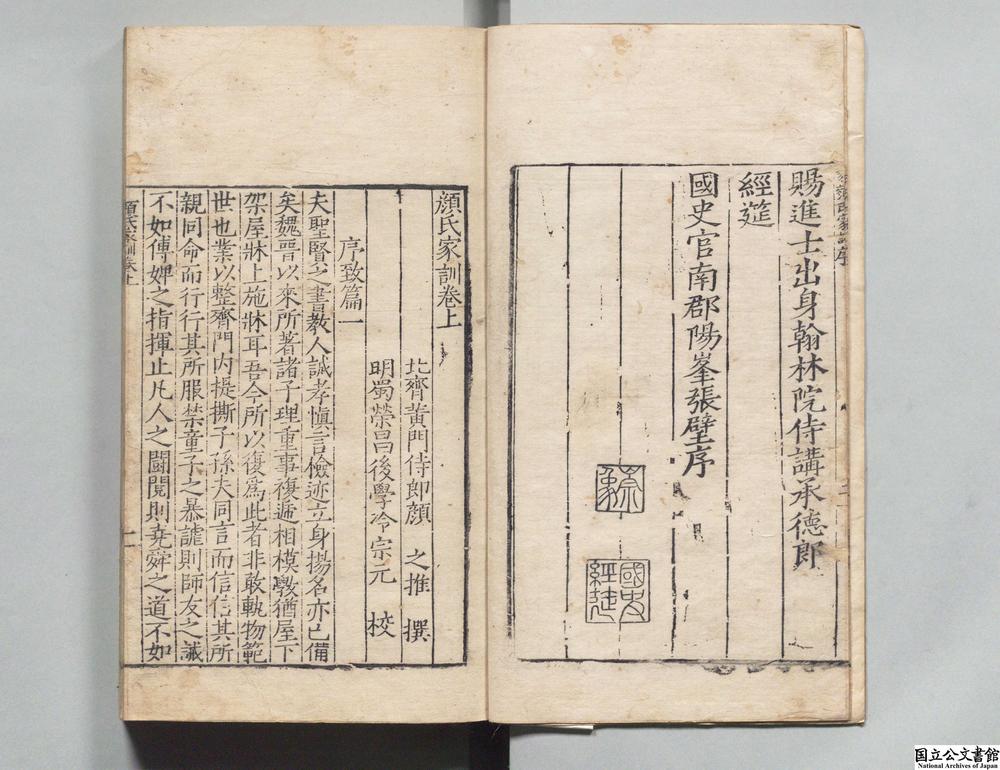 賜進士出身翰林院侍講承德郎
經筵
國史官南郡陽峯張璧序
國史
經筵
顏氏家訓卷上
北齊黃門侍郎顏 之推 撰
明蜀榮昌後學冷宗元 校
序致篇一
夫聖賢之書教人誠孝慎言檢迹立身揚名亦已備
矣魏晉以來所著諸子理重事複遞相模斆猶屋下
架屋牀上施牀耳吾今所以復爲此者非敢軌物範
世也業以整齊門內提撕子孫夫同言而信信其所
親同命而行行其所服禁童子之暴謔則師友之誡
不如傅婢之指揮止凡人之鬬䦧則堯舜之道不如
顏氏家訓卷上
一
国立公文書館
National Archives of Japan